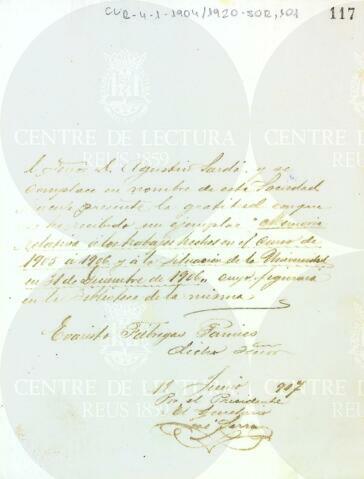 CUR-4-1-1904/1920-SOR,101
117
CENTRE DE LECTURA
REUS 1859
Agustin Sardá, y se
complace en nombre de esta Sociedad
presente la gratitud conque
ha recibido un ejemplar "Memoria
relativa á los trabajos hechos en el curso de
1905 á 1906 y á la situación de la Universidad
en 31 de Diciembre de 1906
en la Biblioteca de la misma
Evaristo Fábregas Pamies
dicho Señor
19 Junio 907
Por el Presidente
El Secretario
José Sarra
CENTRE DE LECTURA
REUS 1859